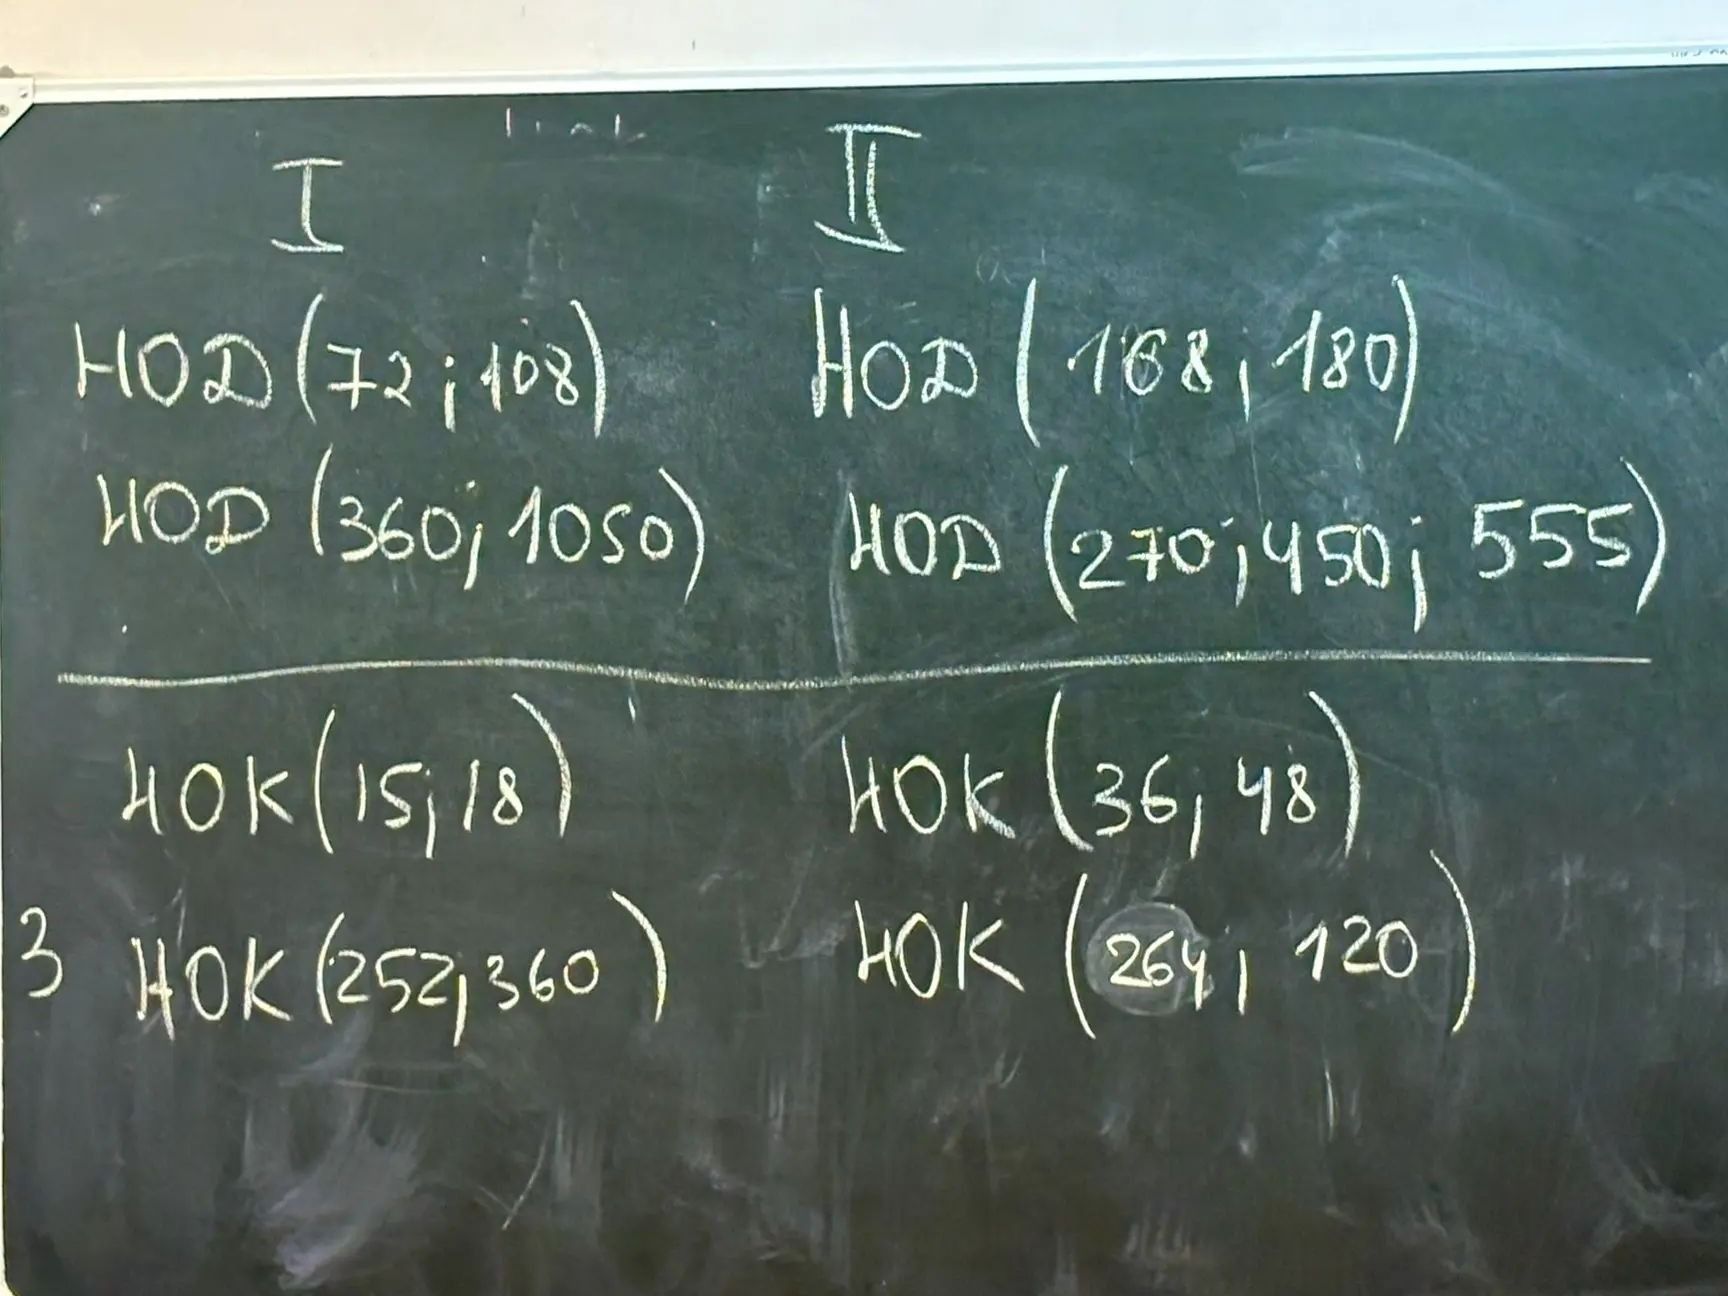 I II
НОД (72; 108) НОД (168, 180)
НОД (360; 1050) НОД (270; 450; 555)
НОК (15; 18) НОК (36, 48)
3 НОК (252, 360) НОК (264, 120)